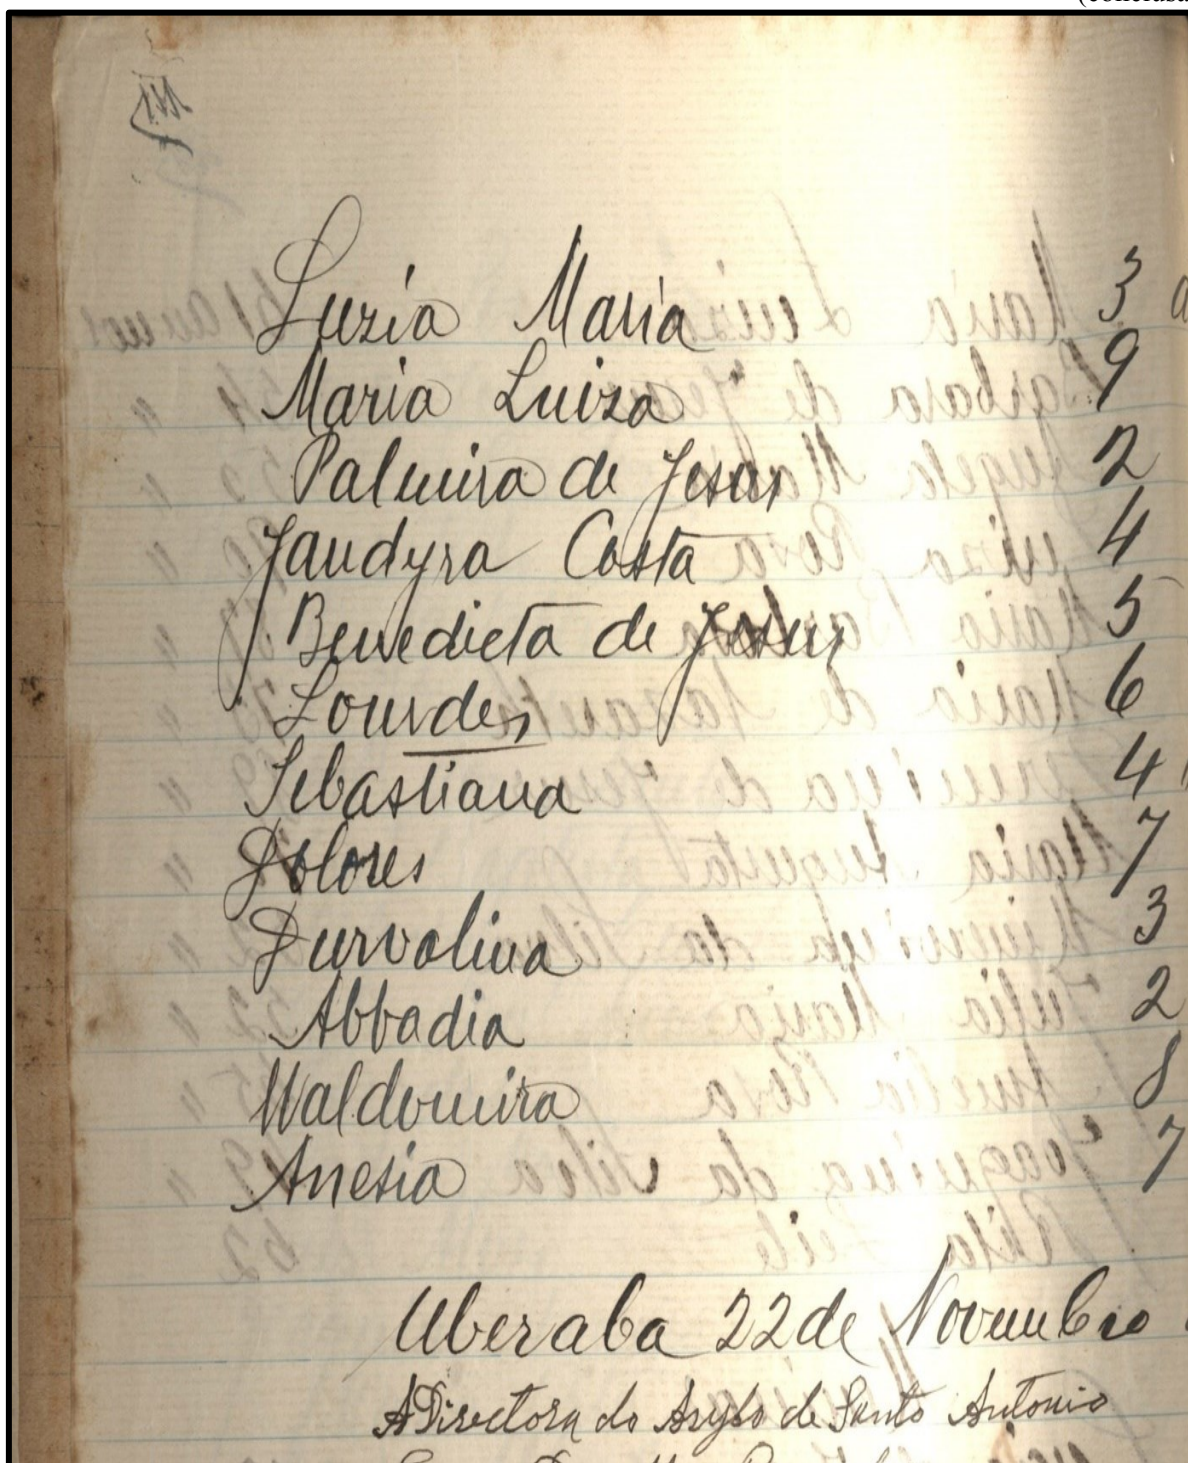 (conclusã
Luzia Maria 3 a
Maria Luiza 9
Palmira de Jesus 2
Jandyra Costa 4
Benedicta de Jesus 5
Lourdes 6
Sebastiana 4
Dolores 7
Durvalina 3
Abbadia 2
Waldomira 8
Anesia 7
Uberaba 22 de Novembro
A Directora do Asylo de Santo Antonio